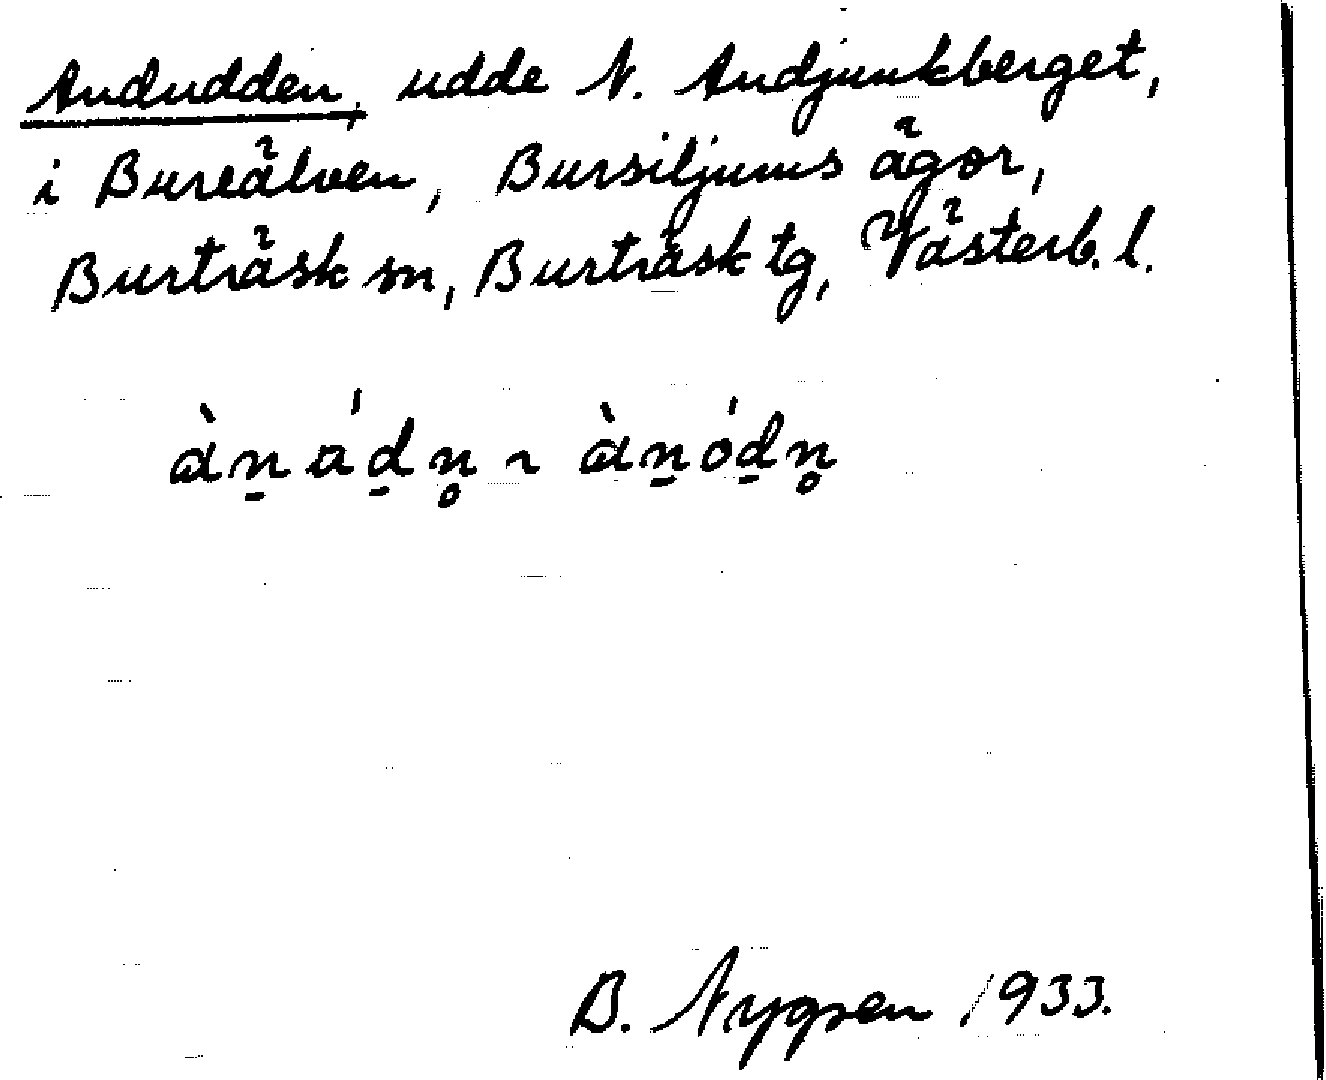 Andudden, udde N. Andjunkberget,
i Bureälven, Bursiljums ägor,
Burträsk sn, Burträsk tg, Västerb. l.
àn̠ ɑ́d̠n̥ ~ àn̠ód̠n̥
B. Nygren 1933.